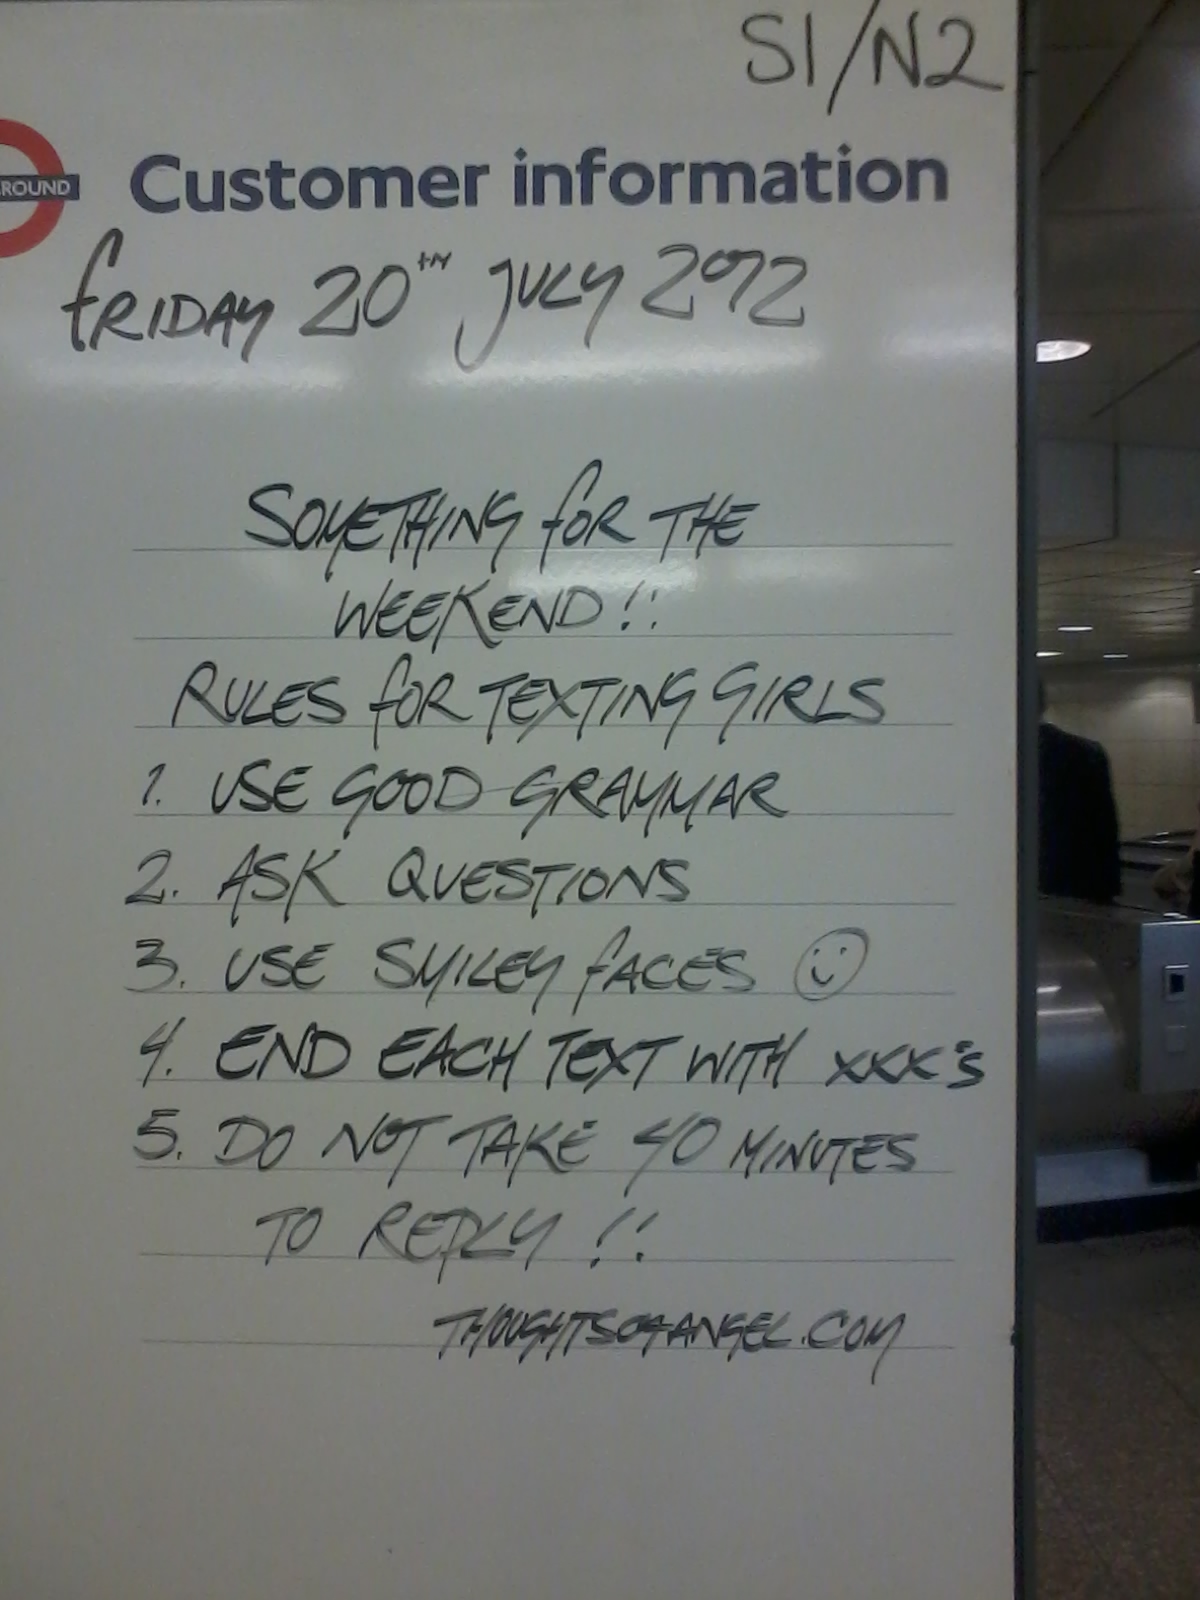 S1/N2
ROUND
Customer information
FRIDAY 20TH JULY 2012
SOMETHING FOR THE
WEEKEND!!
RULES FOR TEXTING GIRLS
1. USE GOOD GRAMMAR
2. ASK QUESTIONS
3. USE SMILEY FACES ☺
4. END EACH TEXT WITH XXX'S
5. DO NOT TAKE 40 MINUTES
TO REPLY!!
THOUGHTSOFANGEL.COM